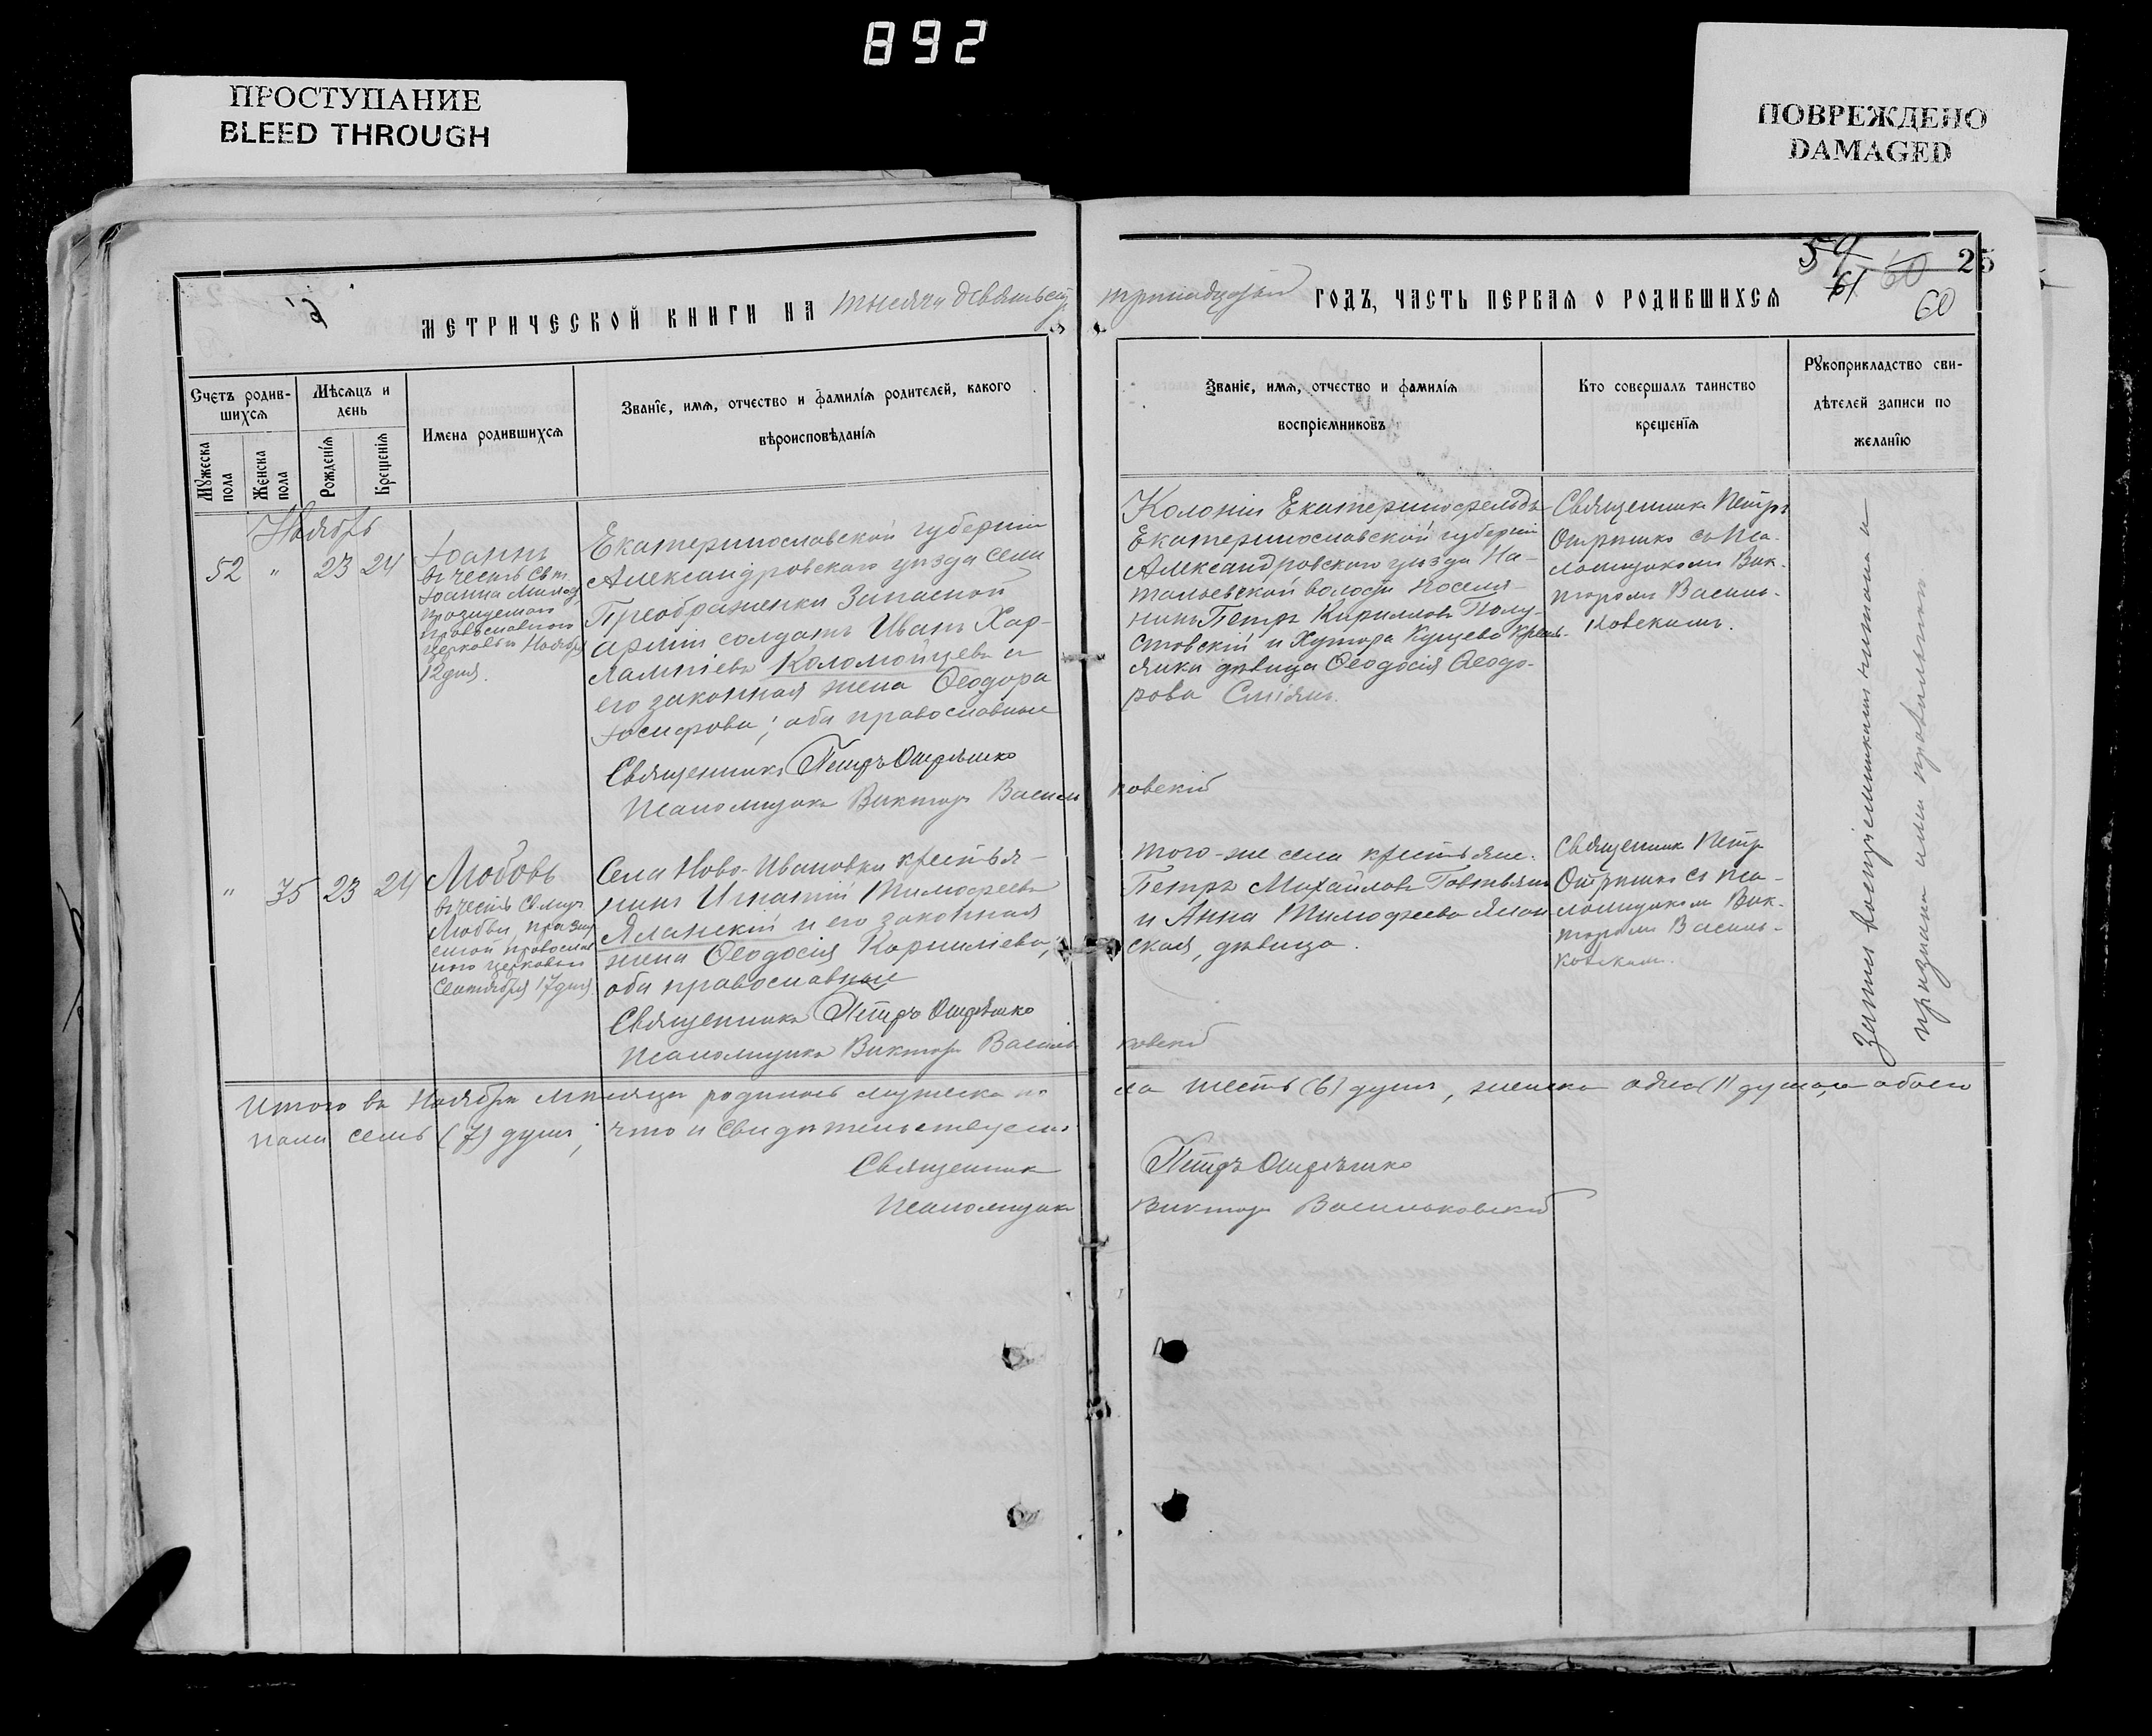 892
ПРОСТУПАНИЕ
BLEED THROUGH
ПОВРЕЖДЕНО
DAMAGED
59 60 25
61 60
МЕТРИЧЕСКОЙ КНИГИ НА тысяча девятьсотъ
тринадцатый ГОДЪ, ЧАСТЬ ПЕРВАЯ О РОДИВШИХСЯ
Счетъ родив-
шихся
Мужеска пола
Женска пола
Мѣсяцъ и
день
Рожденія
Крещенія
Имена родившихся
Званіе, имя, отчество и фамилія родителей, какого
вѣроисповѣданія
Званіе, имя, отчество и фамилія
воспріемниковъ
Кто совершалъ таинство
крещенія
Рукоприкладство сви-
дѣтелей записи по
желанію
Ноябрь
52 " 23 24
Іоаннъ
въ честь Св.
Іоанна Милос.
православною
церковью Ноября
12 дня.
Екатеринославской губерніи
Александровскаго уѣзда села
Преображенки Запасной
арміи солдатъ Иванъ Хар-
лампіевъ Коломойцевъ и
его законная жена Ѳеодора
Іосифова; оба православные
Священникъ Петръ Отрѣшко
Псаломщикъ Викторъ Василь
ковскій
Колоніи Екатеринофельдъ
Екатеринославской губерніи
Александровскаго уѣзда На-
тальевской волости поселя-
нинъ Петръ Кирилловъ Полу-
стовскій и Хутора Купцева крест-
янка дѣвица Ѳеодосія Ѳеодо-
рова Сміянъ.
Священникъ Петръ
Отрѣшко съ Пса-
ломщикомъ Вик-
торомъ Василь-
ковскимъ.
" 75 23 24
Любовь
въ честь Св. муч.
Любви, празду
емой православ
ною церковью
Сентября 17 дня.
Села Ново-Ивановки крестья-
нинъ Игнатій Тимофеевъ
Яланскій и его законная
жена Ѳеодосія Корниліева,
оба православные
Священникъ Петръ Отрѣшко
Псаломщикъ Викторъ Василь
ковскій
того-же села крестьяне:
Петръ Михайловъ
и Анна Тимофеева Ялан
ская, дѣвица.
Священникъ Петръ
Отрѣшко съ пса-
ломщикомъ Вик-
торомъ Василь-
ковскимъ.
Запись воспріемниками читана и
признана ими правильною
Итого въ Ноябрѣ мѣсяцѣ родилось мужеска по
ла шесть (6) душъ, женска одна (1) душа, а обоего
пола семь (7) душъ, что и свидѣтельствуемъ:
Священникъ Петръ Отрѣшко
Псаломщикъ Викторъ Васильковскій